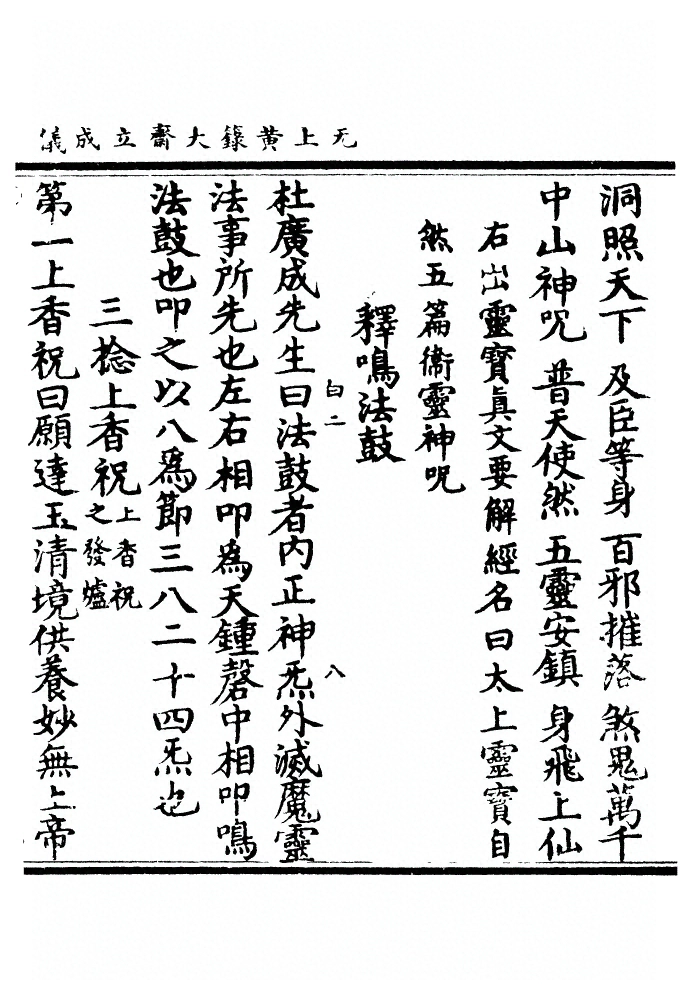 无上黃籙大齋立成儀
洞照天下 及臣等身 百邪摧落 煞鬼萬千
中山神呪 普天使然 五靈安鎮 身飛上仙
右出靈寶真文要解經名曰太上靈寶自
然五篇衞靈神呪
釋鳴法鼓
白二 八
杜廣成先生曰法鼓者內正神炁外滅魔靈
法事所先也左右相叩為天鍾磬中相叩鳴
法鼓也叩之以八為節三八二十四炁也
三捻上香祝上香祝之發爐
第一上香祝曰願達玉清境供養妙無上帝